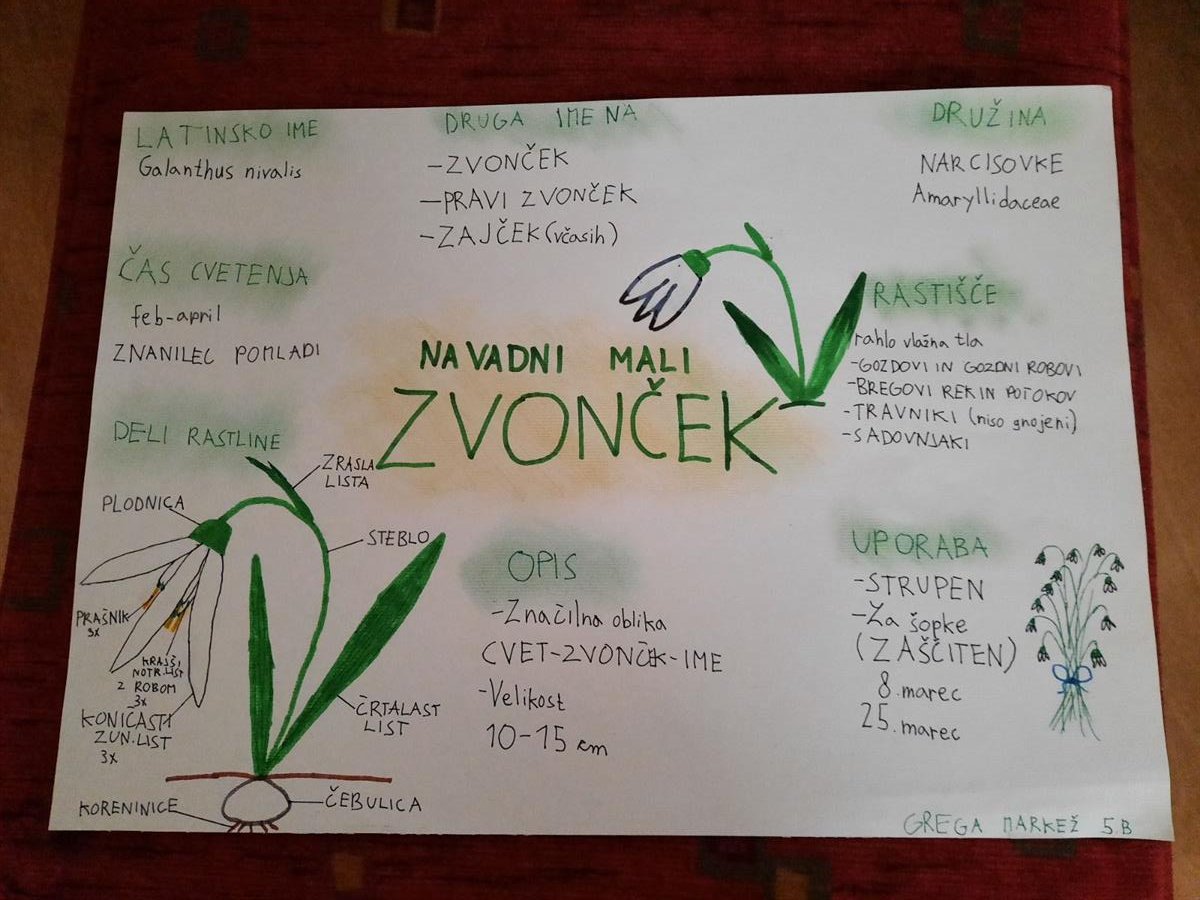 LATINSKO IME
Galanthus nivalis
DRUGA IMENA
-ZVONČEK
-PRAVI ZVONČEK
-ZAJČEK (včasih)
DRUŽINA
NARCISOVKE
Amaryllidaceae
ČAS CVETENJA
feb-april
ZNANILEC POMLADI
NAVADNI MALI
ZVONČEK
RASTIŠČE
rahlo vlažna tla
-GOZDOVI IN GOZDNI ROBOVI
-BREGOVI REK IN POTOKOV
-TRAVNIKI (niso gnojeni)
-SADOVNJAKI
DELI RASTLINE
ZRASLA
LISTA
PLODNICA
STEBLO
PRAŠNIK
9x
KRAJŠI
NOTR. LIST
Z ROBOM
3x
KONIČASTI
ZUN. LIST
3x
ČRTALAST
LIST
KORENINICE
ČEBULICA
OPIS
-Značilna oblika
CVET-ZVONČEK-IME
-Velikost
10-15 cm
UPORABA
-STRUPEN
-Za šopke
(ZAŠČITEN)
8. marec
25. marec
GREGA MARKEŽ 5.B